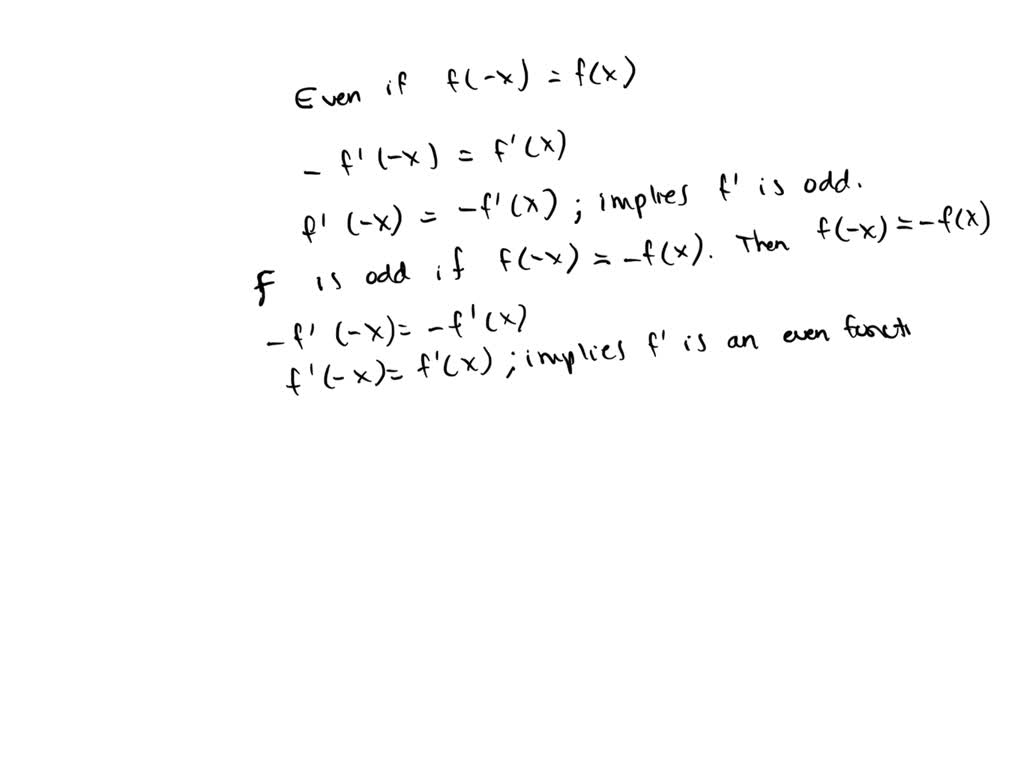 Even if f(-x) = f(x)
- f'(-x) = f'(x)
f'(-x) = -f'(x) ; implies f' is odd.
f is odd if f(-x) = -f(x). Then f(-x) = -f(x)
-f'(-x) = -f'(x)
f'(-x) = f'(x) ; implies f' is an even functi